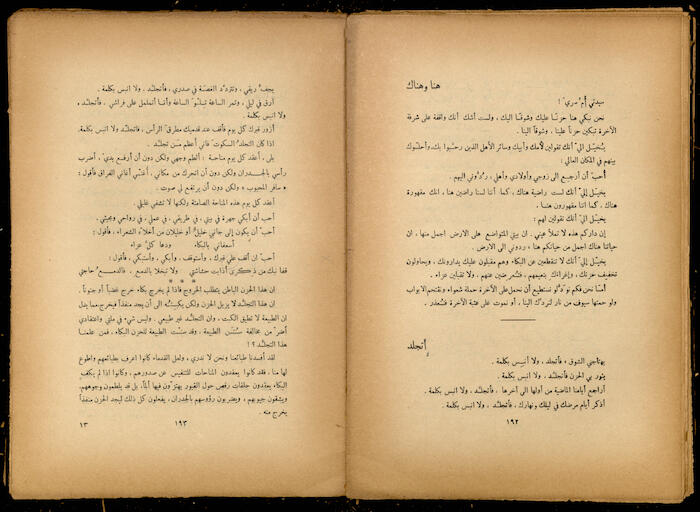 هنا وهناك
سيدتي أم سري !
نحن نبكي هنا حزناً عليك وشوقاً اليك ، ولست أشك أنك واقفة على شرفة
الآخرة تبكين حزناً علينا ، وشوقاً الينا .
يتخيل اليّ أنك تقولين لأمك وأبيك وسائر الأهل الذين رحبوا بك، وأحلوك
بينهم في المكان العالي :
أحب أن أرجع الى زوجي وأولادي وأهلي ، ردوني اليهم .
يخيل إليّ أنك لست راضية هناك ، كما أننا لسنا راضين هنا ، انك مقهورة
هناك ، كما اننا مقهورون هنا .
يخيل اليّ أنك تقولين لهم :
إن داركم هذه لا تملأ عيني . ان بيتي المتواضع على الارض اجمل منها ، ان
حياتنا هناك اجمل من حياتكم هنا ، ردوني الى الارض .
يخيل إليّ أنك لا تنقطعين عن البكاء وهم مقبلون عليك يدارونك ، ويحاولون
تخفيف حزنك ، وإغراءك بنعيمهم ، فتعرضين عنهم ، ولا تقبلين عزاء .
أما نحن فكم نود لو نستطيع أن نحمل على الآخرة حملة شعواء ونقتحم الابواب
ولو حمتها سيوف من نار لنردك الينا ، أو نموت على عتبة الآخرة فنعذر .
إتجلد
يهتاجني الشوق ، فأتجلد ، ولا انبس بكلمة .
يثور بي الحزن فأتجلد ، ولا انبس بكلمة .
أراجع أيامنا الماضية من أولها الى آخرها ، فأتجلد ، ولا انبس بكلمة .
أذكر أيام مرضك في ليلك ونهارك ، فأتجلد ، ولا انبس بكلمة .
١٩٢
يجف ريقي ، وتتردد الغصة في صدري ، فأتجلد . ولا انبس بكلمة .
آرق في ليلي ، وتمر الساعة تلو الساعة وأنا أتململ على فراشي ، فأتجلد .
ولا انبس بكلمة .
أزور قبرك كل يوم فأقف عند قدميك مطرق الرأس ، فأتجلد ولا انبس بكلمة.
اذا كان التجلد السكوت فاني أعظم من تجلد .
بلى ، أعقد كل يوم مناحة : ألطم وجهي ولكن دون أن أرفع يدي ، أضرب
رأسي بالجدران ولكن دون أن اتحرك من مكاني ، أغني أغاني الفراق فأقول :
« سافر المحبوب » ولكن دون أن يرتفع لي صوت .
أعقد كل يوم هذه المناحة الصامتة ولكنها لا تشفي غليلي .
أحب أن أبكي جهرة في بيتي ، في طريقي ، في عملي ، في رواحي ومجيئي .
أحب أن يكون إلى جانبي خليل أو خليلان من أخلاء الشعراء ، فأقول :
أسعفاني بالبكاء ودعا كل عزاء
أحب ان أقف على قبرك ، وأستوقف ، وأبكي ، وأستبكي ، فأقول :
قفا نبك من ذكرى أذابت حشاشتي ولا تبخلا بالدمع ، فالدمع حاجتي
* * *
ان هذا الحزن الباطن يتطلب الخروج فاذا لم يخرج بكاء خرج غضباً أو جنوناً .
ان هذا التجلد لا يزيل الحزن ولكن يكبته الى أن يجد منفذاً فيخرج، مما يدل
ان الطبيعة لا تطيق الكبت ، وان التجلد غير طبيعي . وليس شيء في ملتي واعتقادي
أضر من مخالفة سنن الطبيعة ، وقد سنت الطبيعة للحزن البكاء ، فمن علمنا
هذا التجلد ؟!
لقد أفسدنا طبائعنا ونحن لا ندري ، ولعل القدماء كانوا اعرف بطبائعهم واطوع
لها منا ، فقد كانوا يعقدون المناحات للتنفيس عن صدورهم ، وكانوا اذا لم يكفهم
البكاء يعقدون حلقات رقص حول القبور يهتزون فيها ألماً، بل قد يلطمون وجوههم،
ويشقون جيوبهم ، ويضربون رؤوسهم بالجدران، يفعلون كل ذلك ليجد الحزن منفذاً
يخرج منه .
١٩٣
١٣